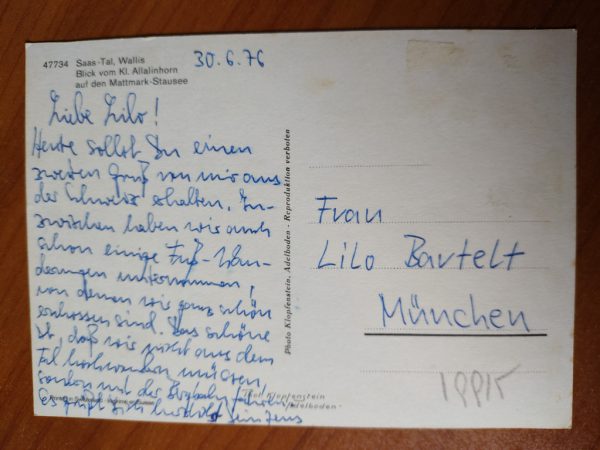 47734 Saas-Tal, Wallis
Blick vom Kl. Allalinhorn
auf den Mattmark-Stausee
30.6.76
Liebe Lilo!
Heute sollst Du einen
zweiten Gruß von mir aus
der Schweiz erhalten. In-
zwischen haben wir auch
schon einige Fuß-Wan-
derungen unternommen,
von denen wir ganz schön
erschossen sind. Das schöne
ist, daß wir nicht aus dem
Tal hochwandern müssen,
sondern mit der Bergbahn fahren.
Es grüßt Dich herzlichst
Photo Klopfenstein, Adelboden - Reproduktion verboten
Frau
Lilo Bartelt
München
Klopfenstein
Adelboden
Printed in